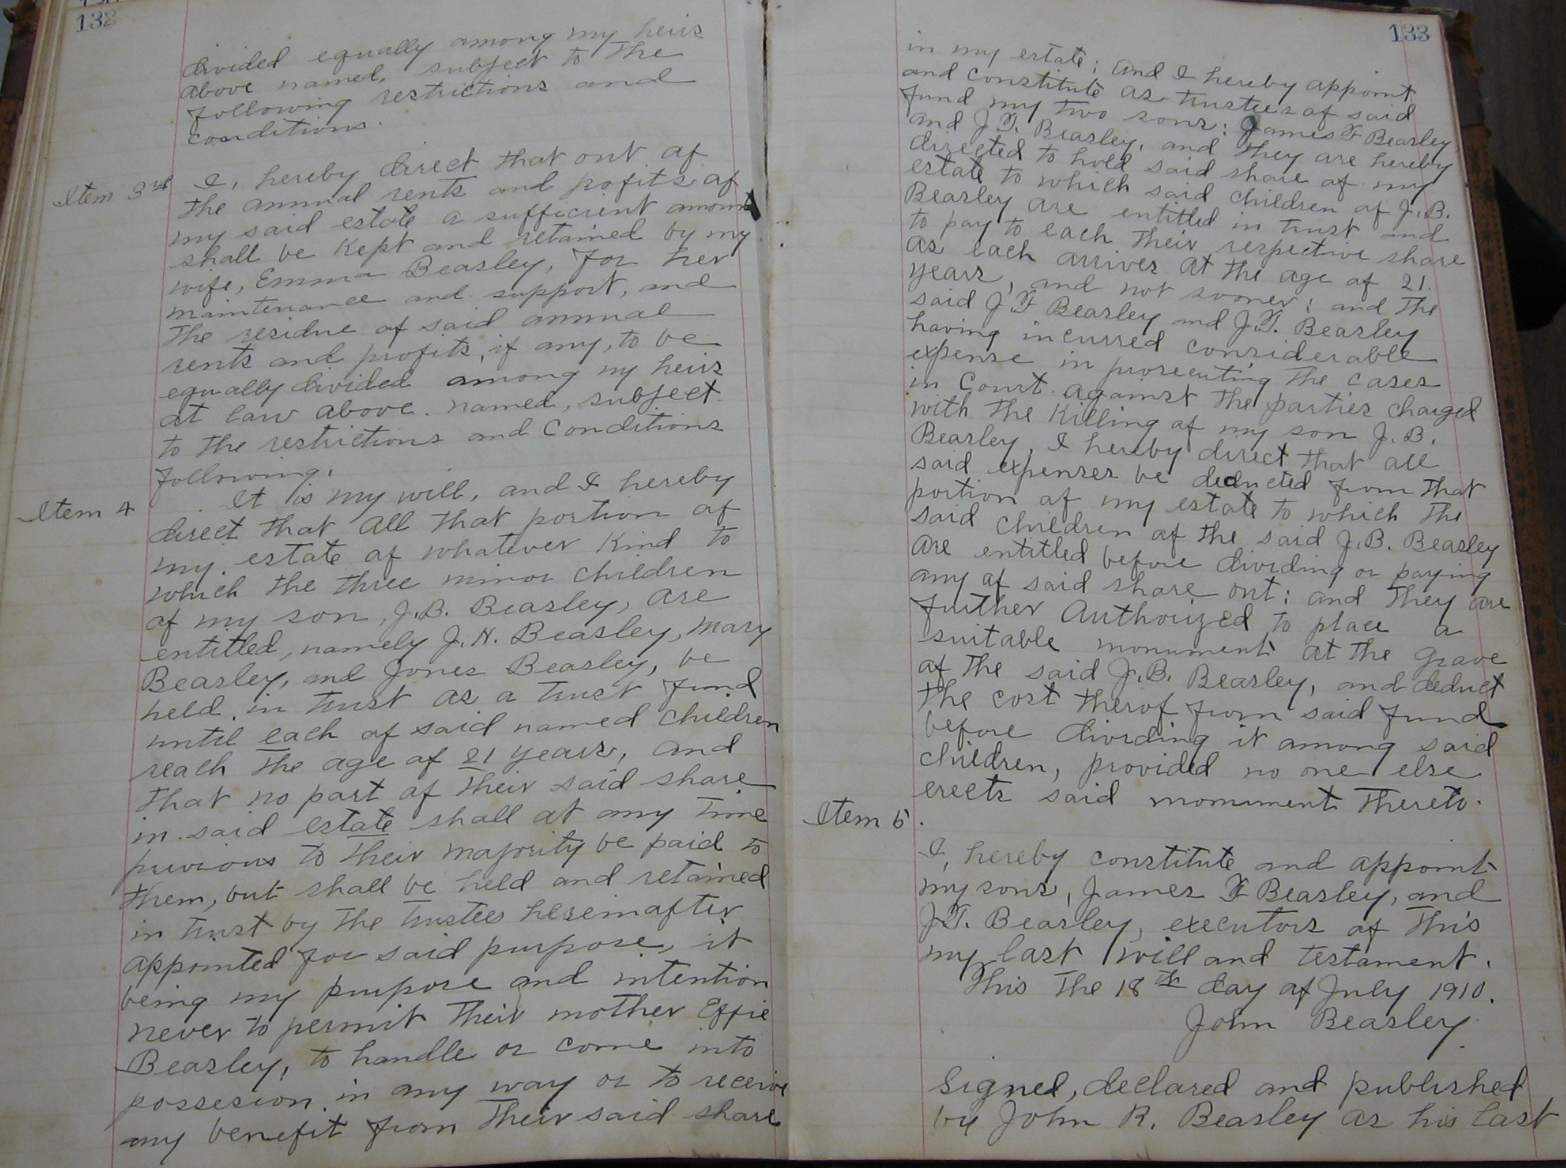 132
divided equally among my heirs
above named, subject to the
following restrictions and
conditions.
Item 3rd I, hereby direct that out of
the annual rents and profits of
my said estate a sufficient amount
shall be kept and retained by my
wife, Emma Beasley, for her
maintenance and support, and
the residue of said annual
rents and profits, if any, to be
equally divided among my heirs
at law above named, subject
to the restrictions and conditions
following.
Item 4 It is my will, and I hereby
direct that all that portion of
my estate of whatever kind to
which the three minor children
of my son, J.B. Beasley, are
entitled, namely J.H. Beasley, Mary
Beasley, and Jones Beasley, be
held in trust as a trust fund
until each of said named children
reach the age of 21 years, and
that no part of their said share
in said estate shall at any time
previous to their majority be paid to
them, but shall be held and retained
in trust by the trustees hereinafter
appointed for said purpose, it
being my purpose and intention
never to permit their mother Effie
Beasley, to handle or come into
possesion in any way or to receive
any benefit from their said share
133
in my estate; and I hereby appoint
and constitute as trustees of said
fund my two sons: James F Beasley
and J.T. Beasley, and they are hereby
directed to hold said share of my
estate to which said children of J.B.
Beasley are entitled in trust and
to pay to each their respective share
as each arrives at the age of 21.
years, and not sooner; and the
said J F Beasley and J.T. Beasley
having incurred considerable
expense in prosecuting the cases
in Court against the parties charged
with the killing of my son J.B.
Beasley, I hereby direct that all
said expenses be deducted from that
portion of my estate to which the
said children of the said J.B. Beasley
are entitled before dividing or paying
any of said share out; and they are
further authorized to place a
suitable monument at the grave
of the said J.B. Beasley, and deduct
the cost therof from said fund
before dividing it among said
children, provided no one else
erects said monument thereto.
Item 5.
I, hereby constitute and appoint
my sons, James F Beasley, and
J.T. Beasley, executors of this
my last will and testament.
This the 18th day of July 1910.
John Beasley.
Signed, declared and published
by John R. Beasley as his last